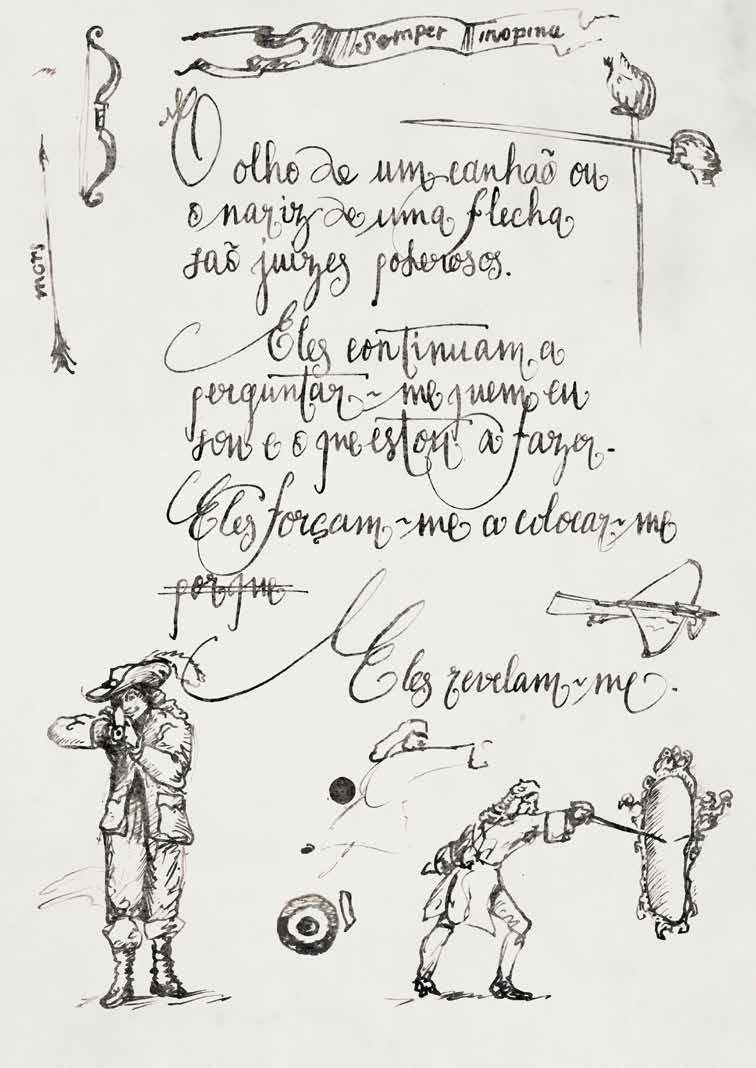 Semper inopina
mors
O olho de um canhaõ ou
o nariz de uma flecha
saõ juizes poderosos.
Eles continuam a
perguntar-me quem eu
sou e o que estou a fazer.
Eles forçam-me a colocar-me
porque
Eles revelam-me.